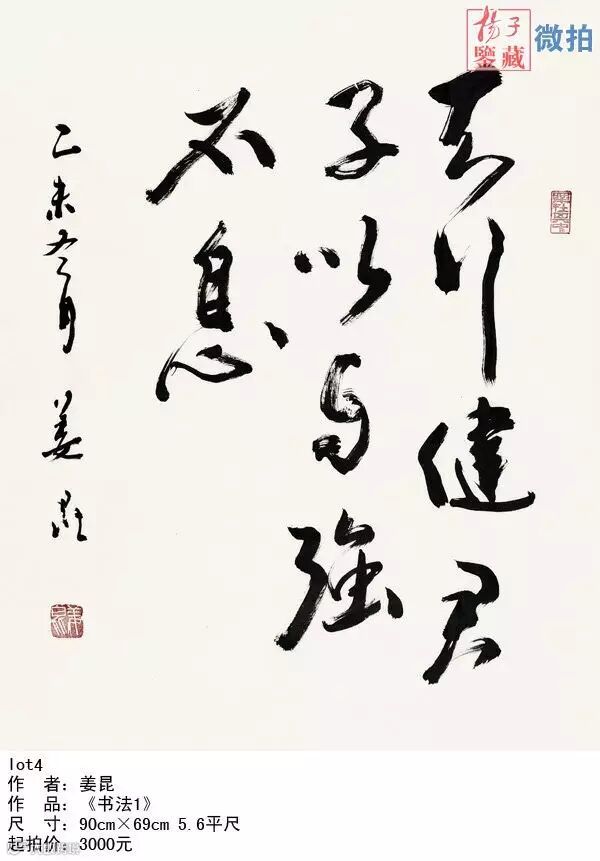 揚子
鑒藏
微拍
天行健君
子以自强
不息
乙未五月 姜昆
lot4
作 者：姜昆
作 品：《书法1》
尺 寸：90cm×69cm 5.6平尺
起拍价：3000元